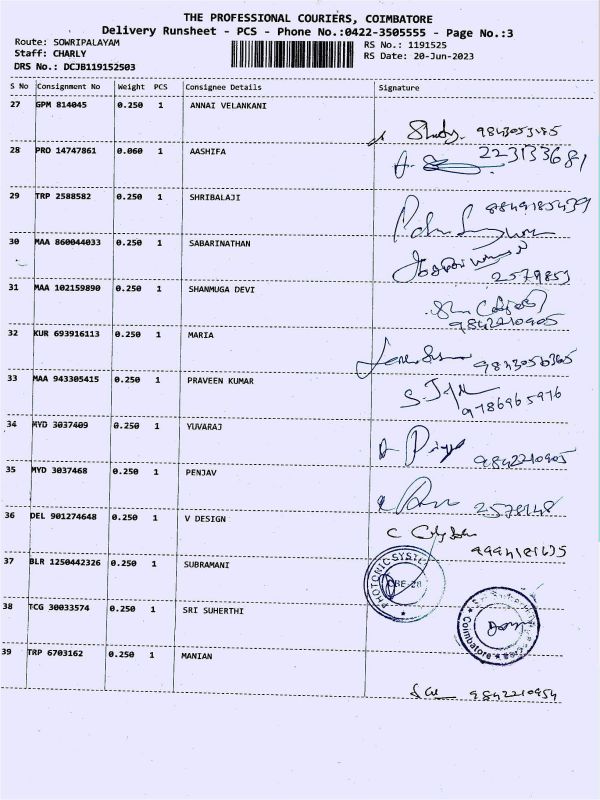 THE PROFESSIONAL COURIERS, COIMBATORE
Delivery Runsheet - PCS - Phone No.:0422-3505555 - Page No.:3
Route: SOWRIPALAYAM RS No.: 1191525
Staff: CHARLY RS Date: 20-Jun-2023
DRS No.: DCJB119152503
S No Consignment No Weight PCS Consignee Details Signature
27 GPM 814045 0.250 1 ANNAI VELANKANI
28 PRO 14747861 0.060 1 AASHIFA
223133681
29 TRP 2588582 0.250 1 SHRIBALAJI
30 MAA 860044033 0.250 1 SABARINATHAN
2579853
31 MAA 102159890 0.250 1 SHANMUGA DEVI
9842210905
32 KUR 693916113 0.250 1 MARIA
33 MAA 943305415 0.250 1 PRAVEEN KUMAR
9786965976
34 MYD 3037409 0.250 1 YUVARAJ
9842210905
35 MYD 3037468 0.250 1 PENJAV
2578148
36 DEL 901274648 0.250 1 V DESIGN
37 BLR 1250442326 0.250 1 SUBRAMANI
PHOTONIC SYSTE
CBE-28
38 TCG 30033574 0.250 1 SRI SUHERTHI
Coimbatore
39 TRP 6703162 0.250 1 MANIAN
9842210954